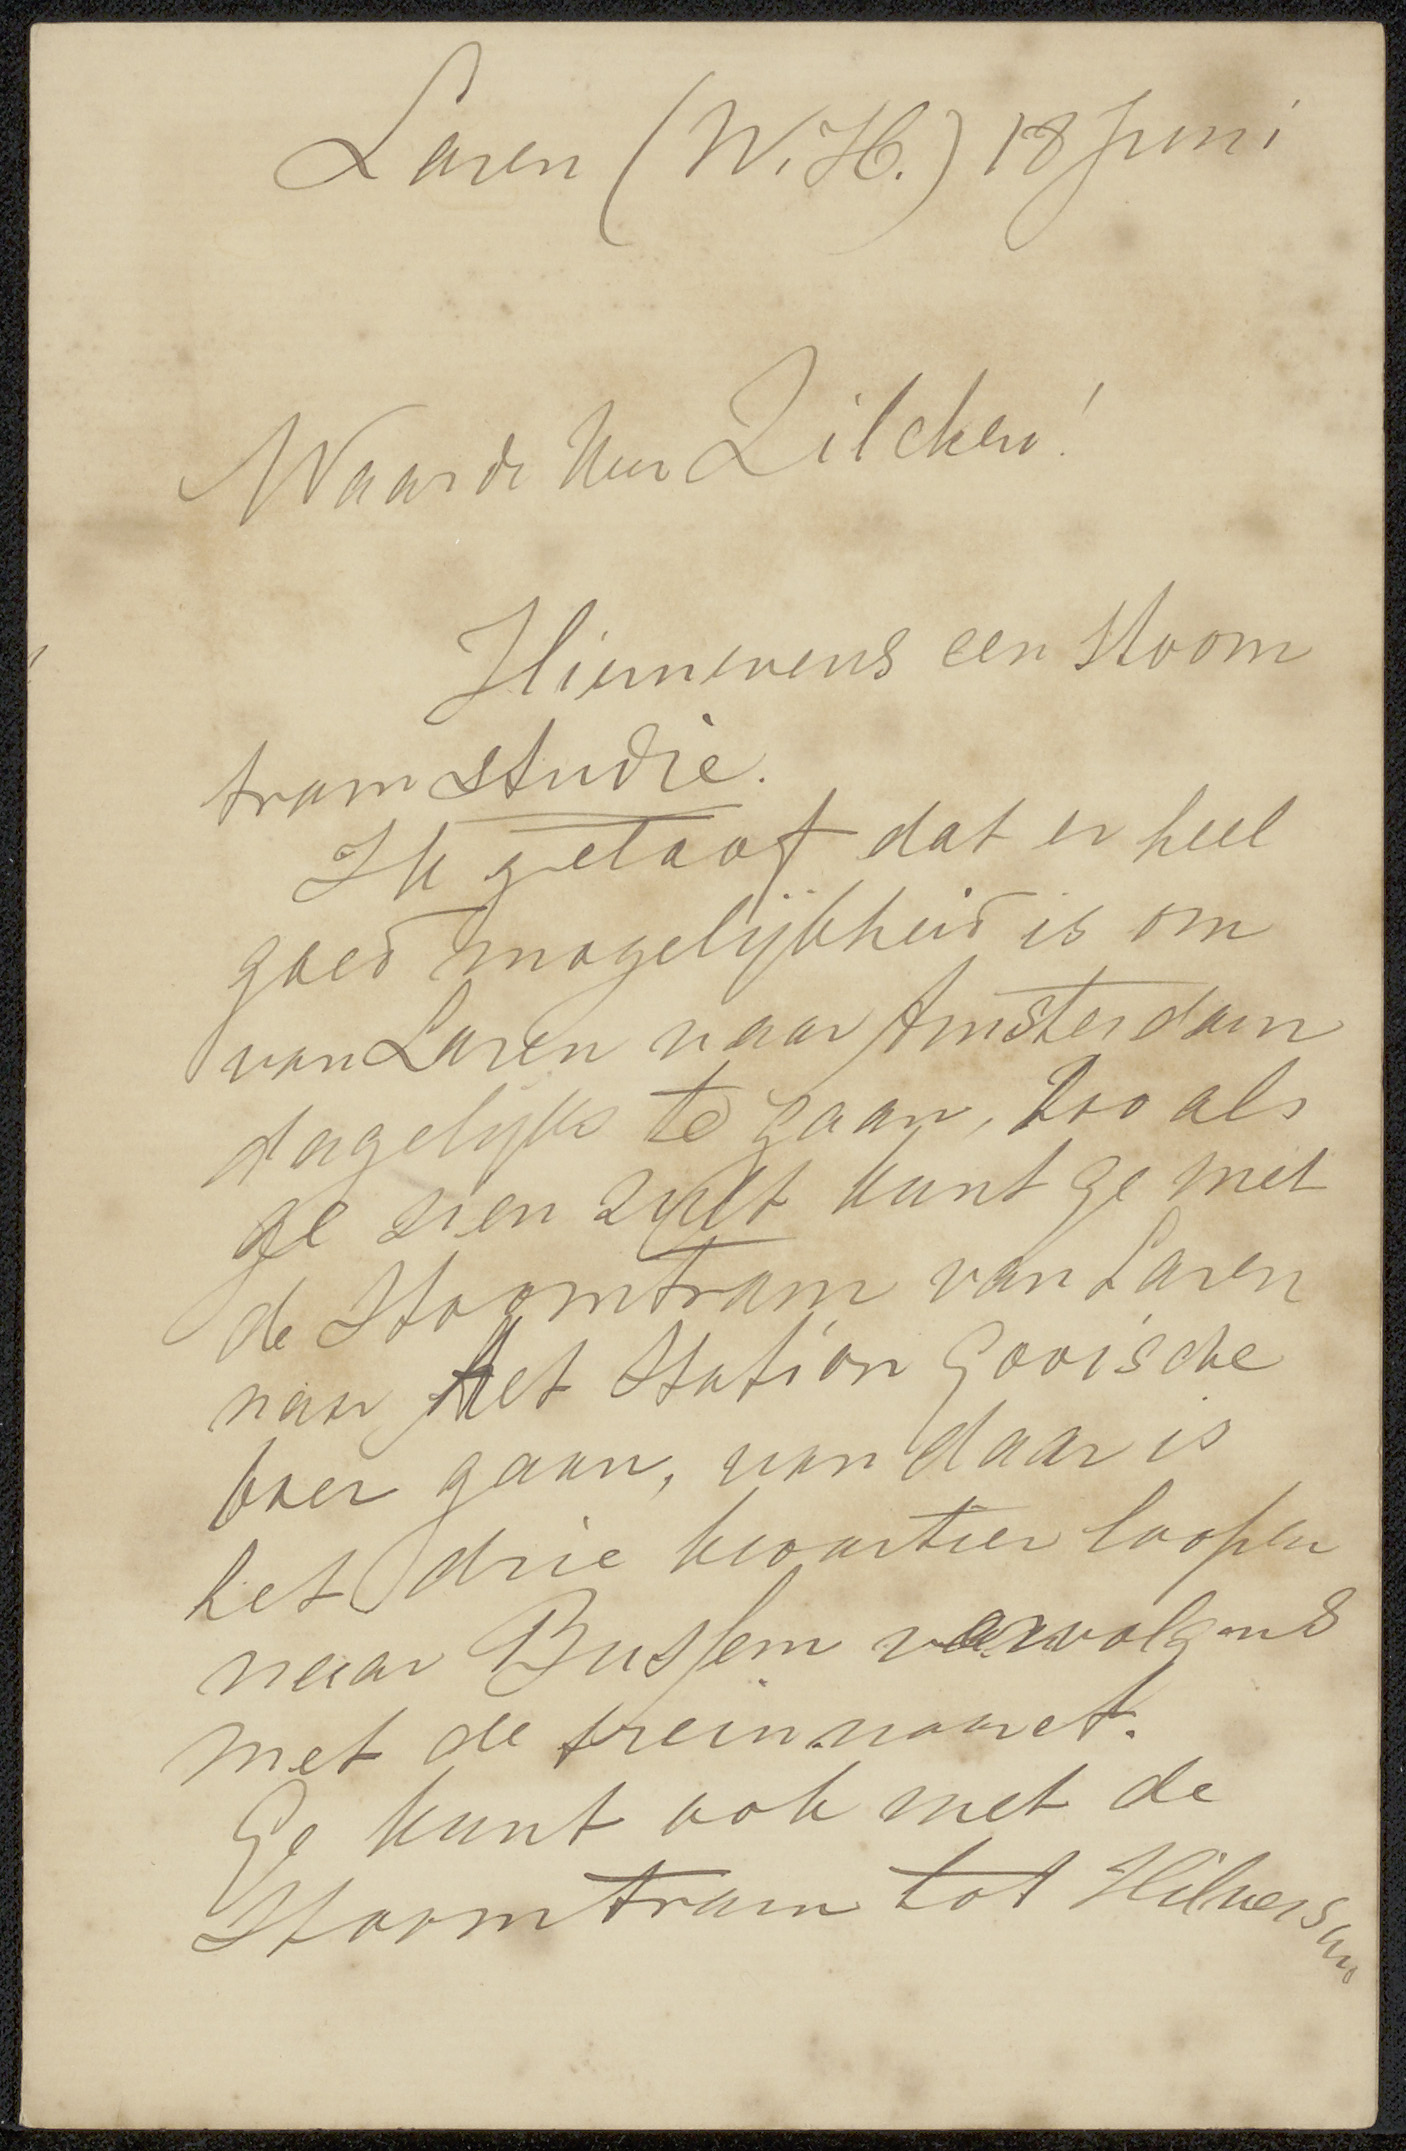 Laren (N. H.) 18 Juni
Waarde Heer Zilcken!
Hiernevens een stoom
tram studie.
Ik geloof dat er heel
goed mogelijkheid is om
van Laren naar Amsterdam
dagelijks te gaan, zoo als
ge zien zult kunt ge met
de Stoomtram van Laren
naar het Station Gooische
boer gaan, van daar is
het drie kwartier loopen
naar Bussem vervolgens
met de trein
Ge kunt ook met de
Stoomtram tot Hilversum